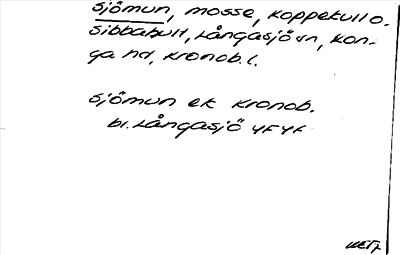 sjömun, mosse, Koppekull o.
Sibbahult, Långasjö sn, Kon-
ga hd, Kronob. l.
sjömun ek Kronob.
bl. Långasjö 4F4f